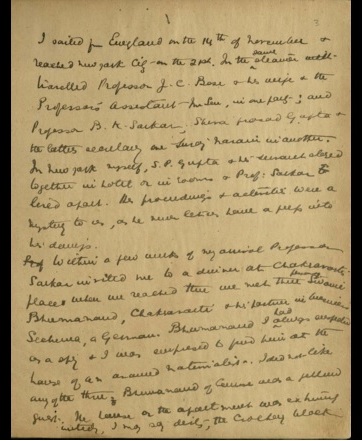 I sailed for England on the 14th of November &
reached New York City on the 21st. In the same steamer
travelled Professor J. C. Bose & his wife & the
Professor's Assistant in one party; and
Professor B. K. Sarkar, Shiva Prasad Gupta &
the latter's secretary one Suraj Narain in another.
In New York myself, S. P. Gupta & his servant lodged
together in hotel or in rooms & Prof: Sarkar
lived apart. His proceedings & activities were a
mystery to us, as he never let us have a peep into
his doings.
Within a few weeks of my arrival Professor
Sarkar invited me to a dinner at Chakravarti's
place when we reached there we met Swami
Bhumanand, Chakravarti & his partner in
Seekuna, a German. Bhumanand I had always suspected
as a spy & I was surprised to find him at the
house of an avowed nationalist. I did not like
any of the three. Bhumanand of course was a fellow
guest. The house or the apartment was
I may say, the